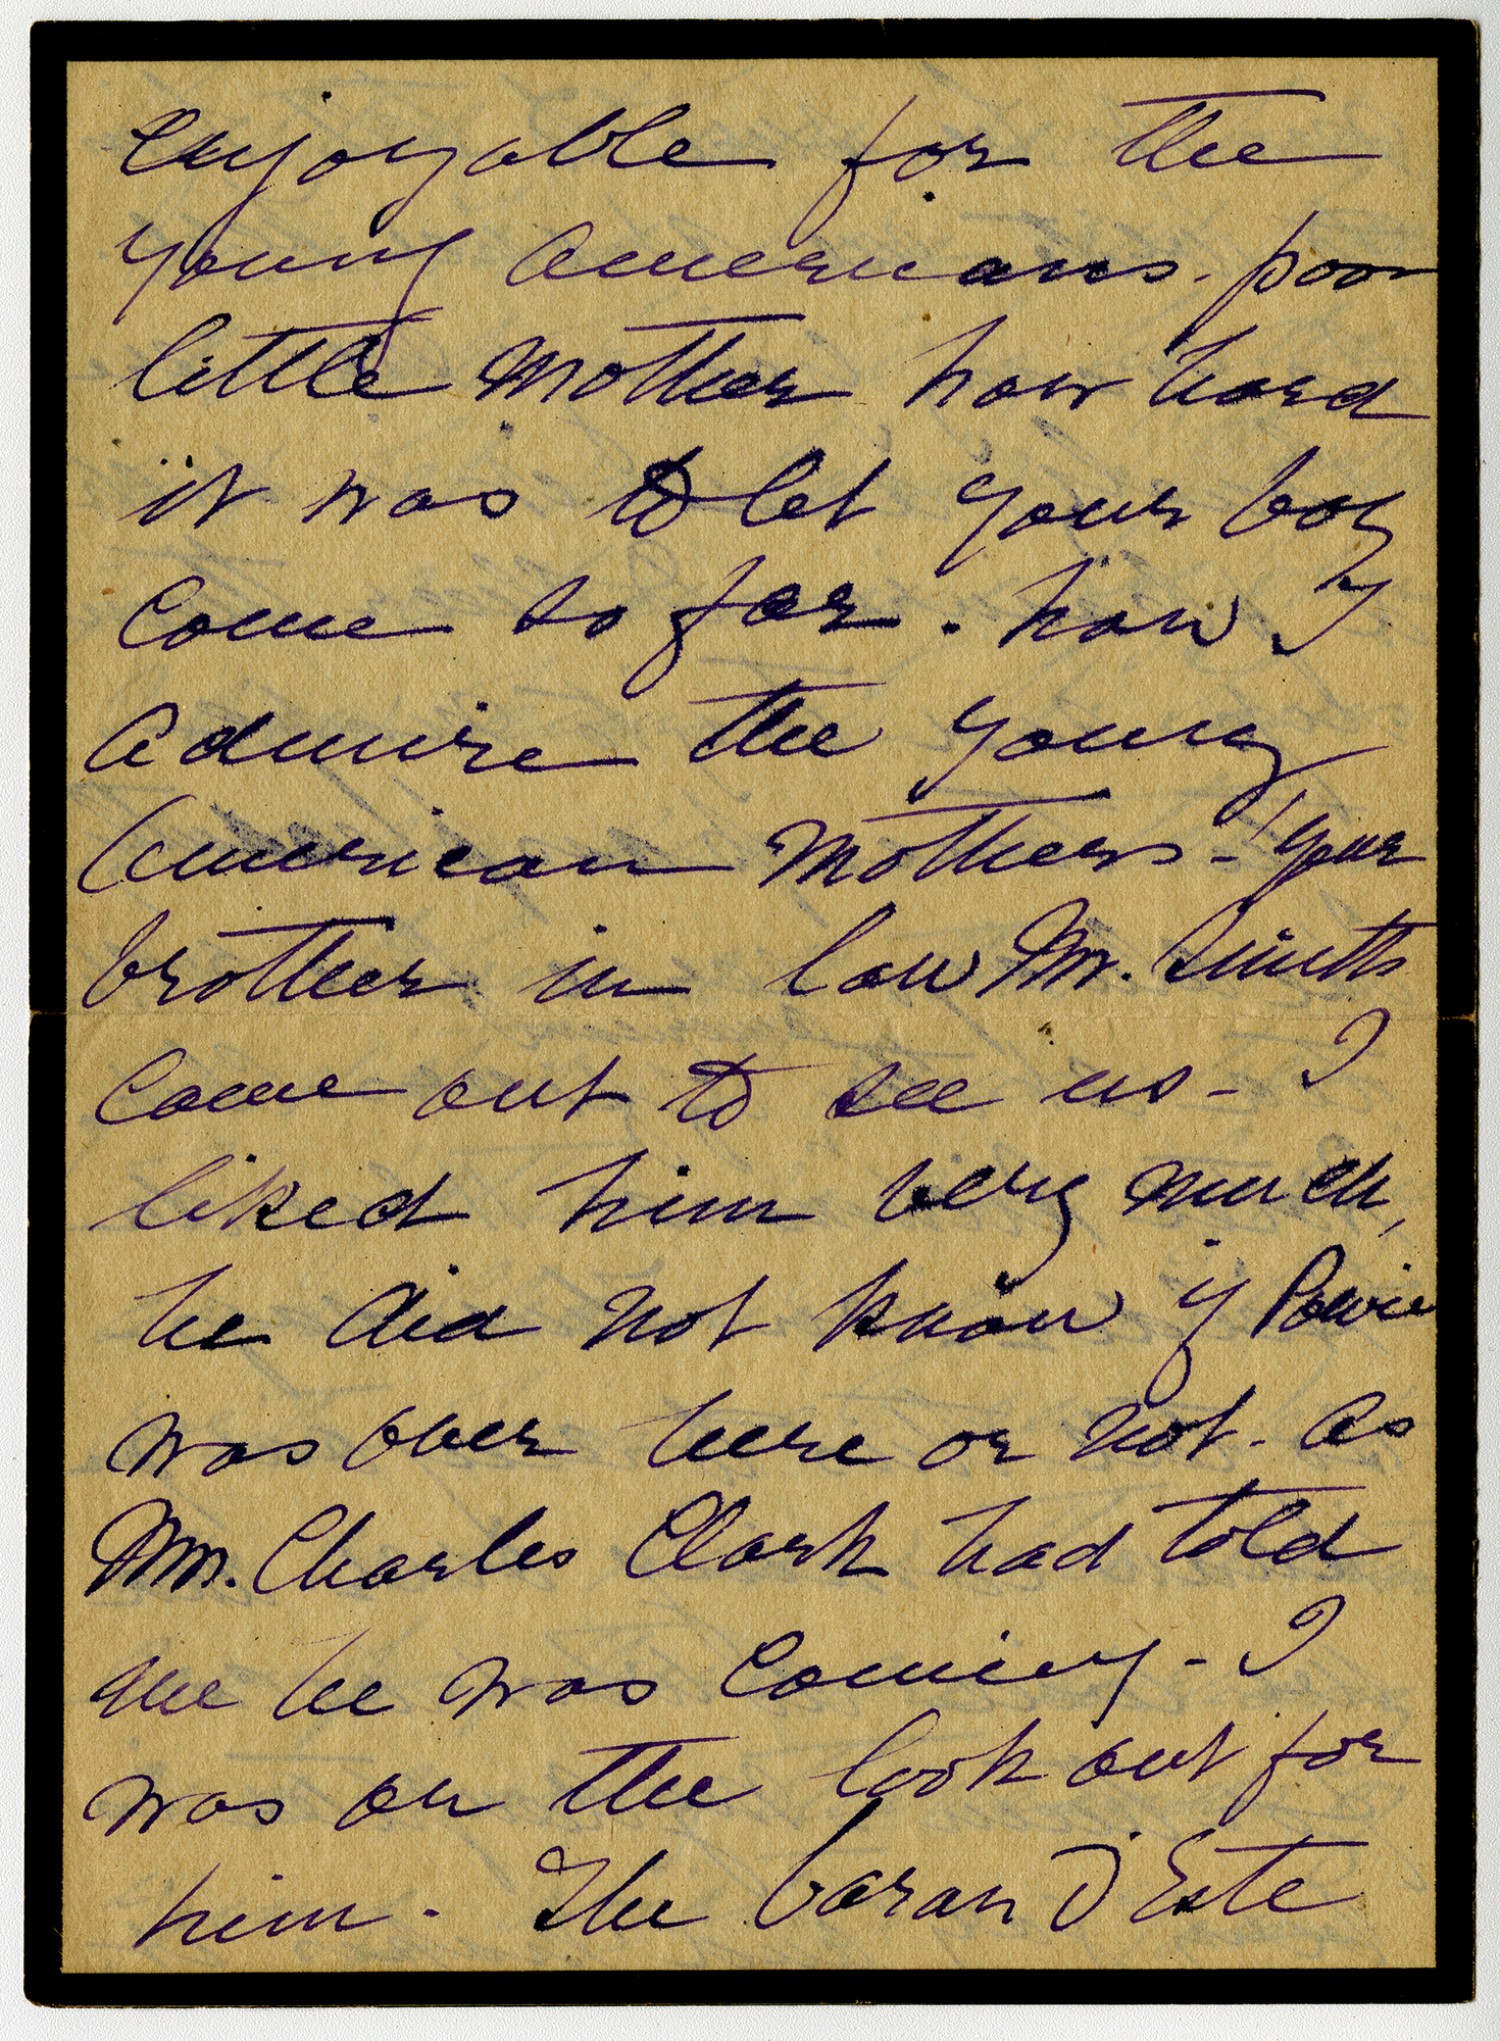 enjoyable for the
young Americans. poor
little Mother how hard
it was to let your boy
come so far. how I
admire the young
American Mothers - your
brother in law Mr. Smith
came out to see us - I
liked him very much,
he did not know if
was over here or not. as
Mr. Charles Clark had told
me he was coming - I
was on the look out for
him. The baron d'Este